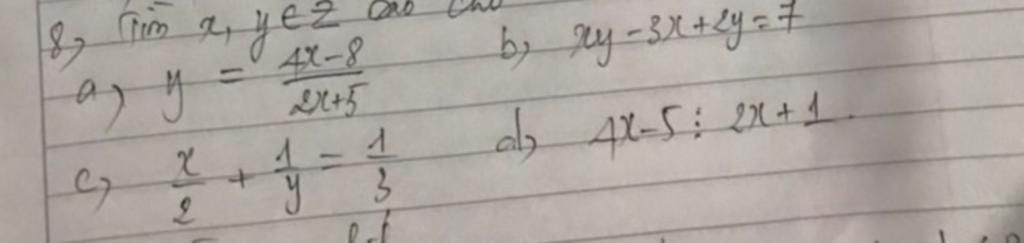 8, Tìm x, y ∈ Z sao cho
a, y = \frac{4x-8}{2x+5} b, xy - 3x + 2y = 7
c, \frac{x}{2} + \frac{1}{y} = \frac{1}{3} d, 4x - 5 ⋮ 2x + 1.